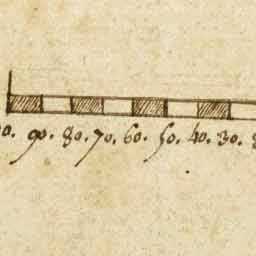 90. 80. 70. 60. 50. 40. 30.